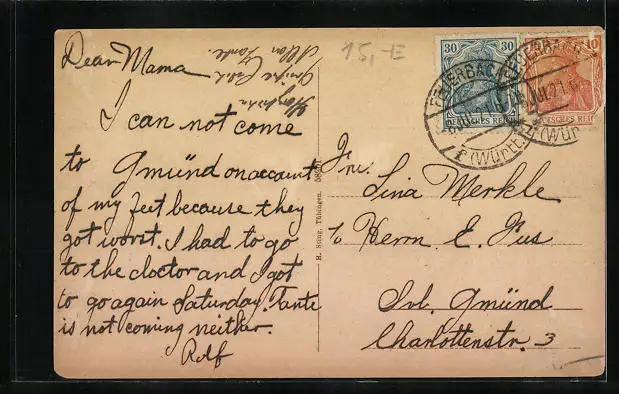 Dear Mama
I can not come
to Gmünd on account
of my feet because they
got worst. I had to go
to the doctor and I got
to go again Saturday. Tante
is not coming neither.
Rolf
15,-E
H. Sting, Tübingen.
30 30
DEUTSCHES REICH
10
DEUTSCHES REICH
FEUERBACH
(Württ)
FEUERBACH
(Württ)
Lina Merkle
Herrn E. Fus
Gmünd
Charlottenstr. 3